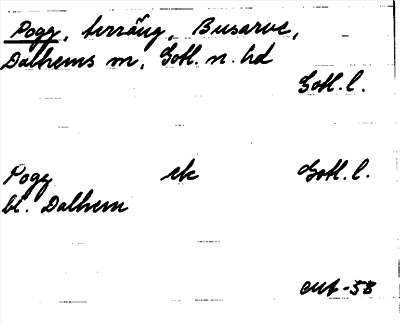 Pogg, terräng, Busarve,
Dalhems sn, Gotl. n. hd
Gotl. l.
Pogg ek Gotl. l.
bl. Dalhem
-58